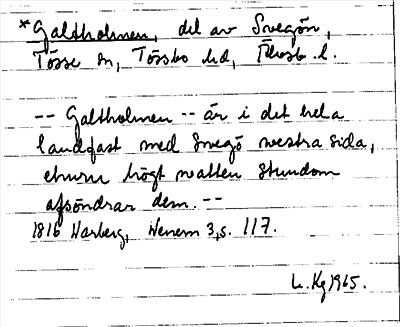 *Galtholmen, del av Snegön,
Tösse sn, Tössbo hd, Älvsb. l.
-- Galtholmen -- är i det hela
landfast med Snegö westra sida,
ehuru högt watten stundom
afsöndrar dem. --
1816 Warberg, Wenern 3, s. 117.
L. Kg 1965.